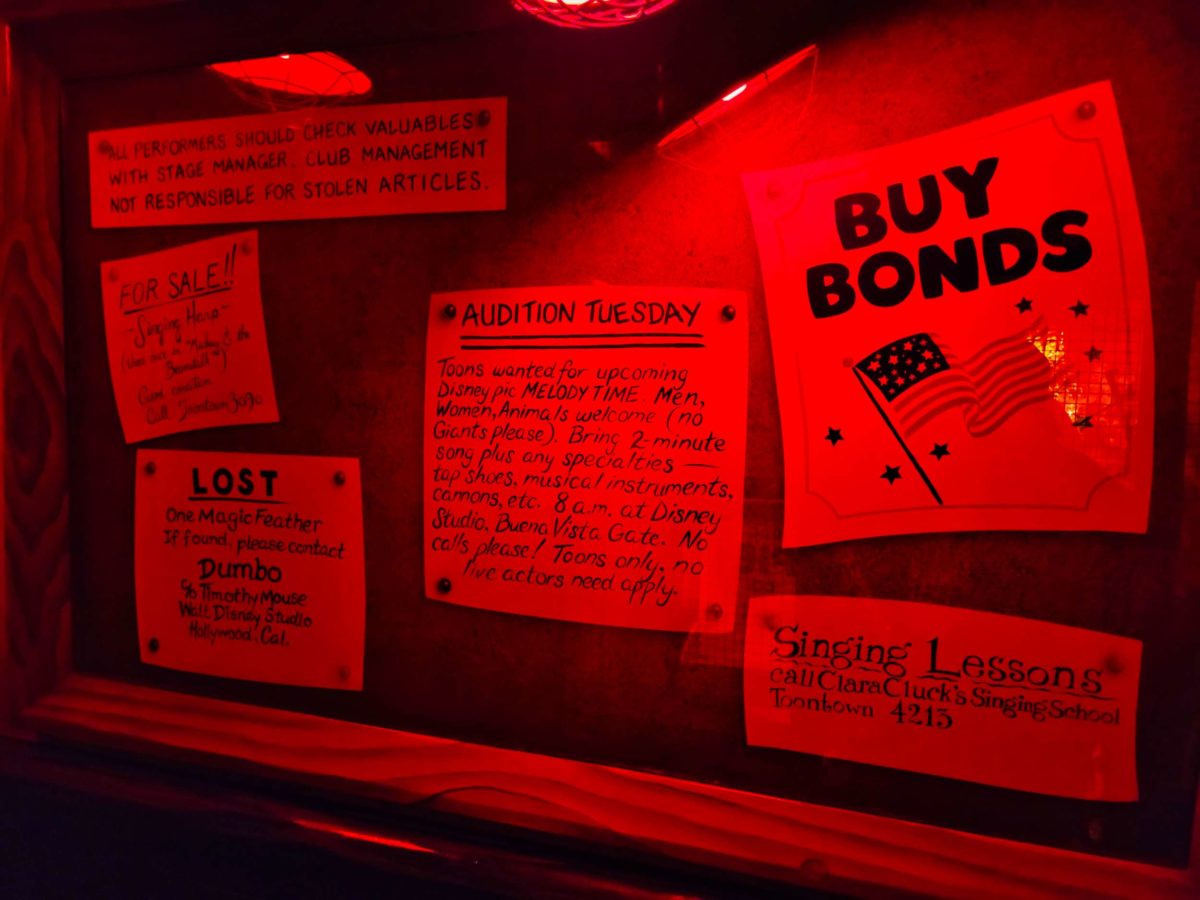 ALL PERFORMERS SHOULD CHECK VALUABLES
WITH STAGE MANAGER. CLUB MANAGEMENT
NOT RESPONSIBLE FOR STOLEN ARTICLES.
FOR SALE!!
- Singing Harp -
(Was once in "Mickey & the
Beanstalk")
Good condition
Call Toontown 3030
LOST
One Magic Feather
If found, please contact
Dumbo
c/o Timothy Mouse
Walt Disney Studio
Hollywood, Cal.
AUDITION TUESDAY
Toons wanted for upcoming
Disney pic MELODY TIME. Men,
Women, Animals welcome (no
Giants please). Bring 2-minute
song plus any specialties —
tap shoes, musical instruments,
cannons, etc. 8 a.m. at Disney
Studio, Buena Vista Gate. No
calls please! Toons only, no
live actors need apply.
BUY
BONDS
Singing Lessons
call Clara Cluck's Singing School
Toontown 4213